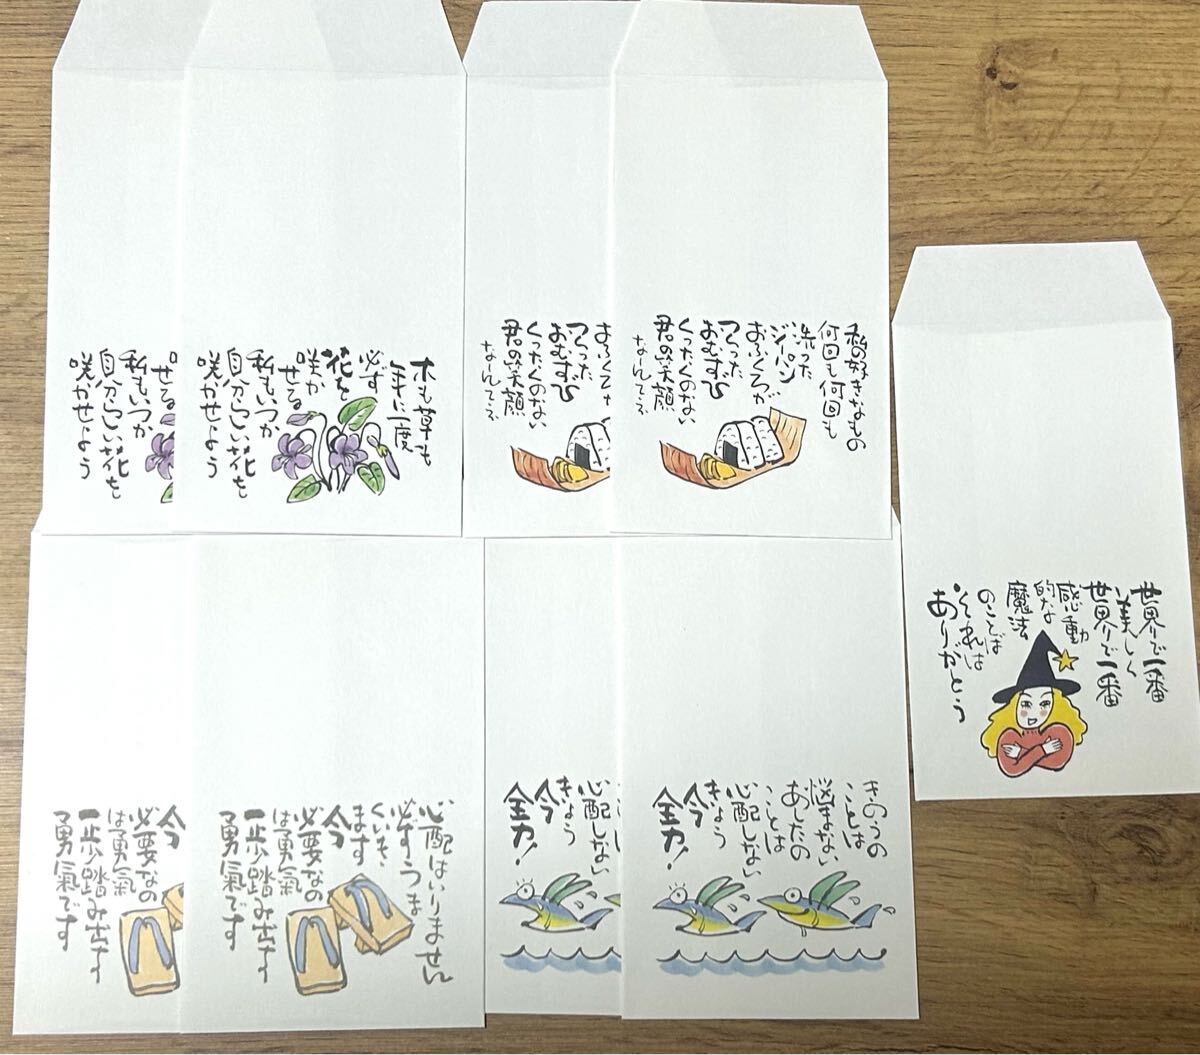 木も草も
年に一度
必ず
花を
咲か
せる
私もいつか
自分らしい花を
咲かせよう
せる
私もいつか
自分らしい花を
咲かせよう
私の好きなもの
何回も何回も
洗った
ジーパン
おふくろが
つくった
おむすび
くったくのない
君の笑顔
なーんてネ
おふくろ
つくった
おむすび
くったくのない
君の笑顔
なーんてネ
世界で一番
美しく
世界で一番
感動
的な
魔法
のことば
それは
ありがとう
心配はいりません
必ずうま
くいき
ます
今
必要なの
は勇氣
一歩踏み出す
勇氣です
今
必要なの
は勇氣
一歩踏み出す
勇氣です
きのうの
ことは
悩まない
あしたの
ことは
心配しない
きょう
今
全力!
心配しない
きょう
今
全力!